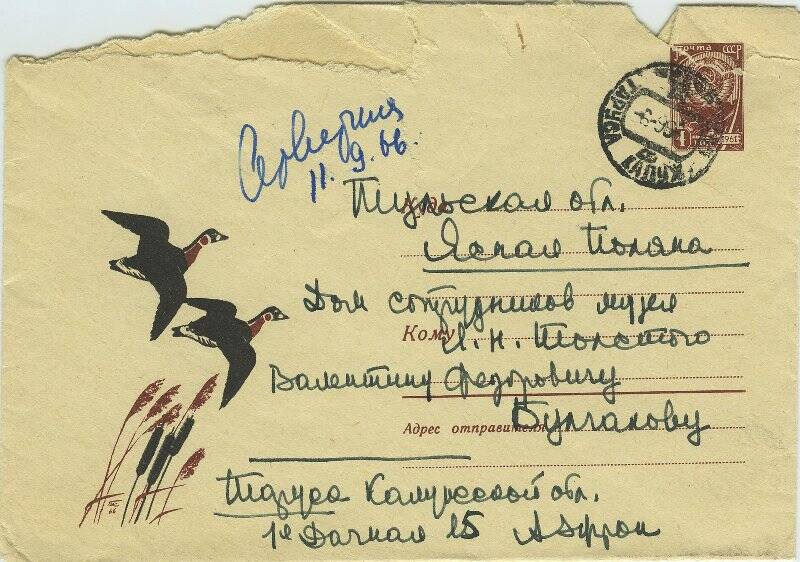 почта СССР
1961
ТАРУСА
11. 9. 66.
Куда
Тульская обл.
Ясная Поляна
Дом сотрудников музея
Кому
Л. Н. Толстого
Валентину Федоровичу
Булгакову
Адрес отправителя
Таруса Калужской обл.
1я Дачная 15 А Эфрон
66